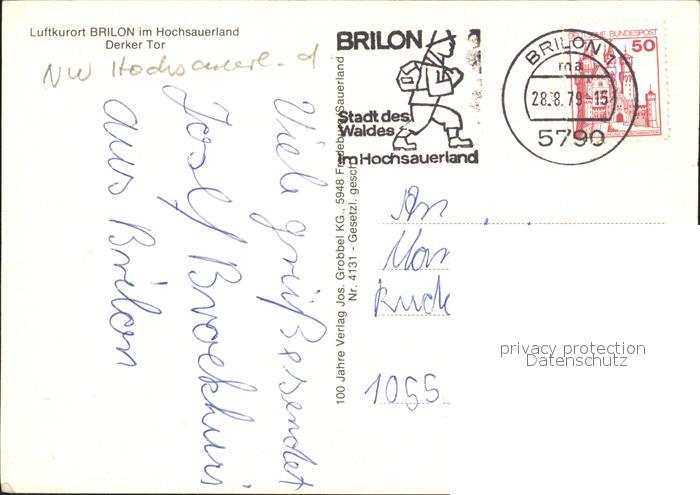 Luftkurort BRILON im Hochsauerland
Derker Tor
NW Hochsauerl.
Viele grüße sendet
Josef
aus Brilon
100 Jahre Verlag Jos. Grobbel KG., 5948 Fredeburg/Sauerland
Nr. 4131 - Gesetzl. gesch.
BRILON
Stadt des
Waldes
im Hochsauerland
BRILON 1
ma
28.8.79-15
5790
DEUTSCHE BUNDESPOST
50
An
1055
privacy protection
Datenschutz